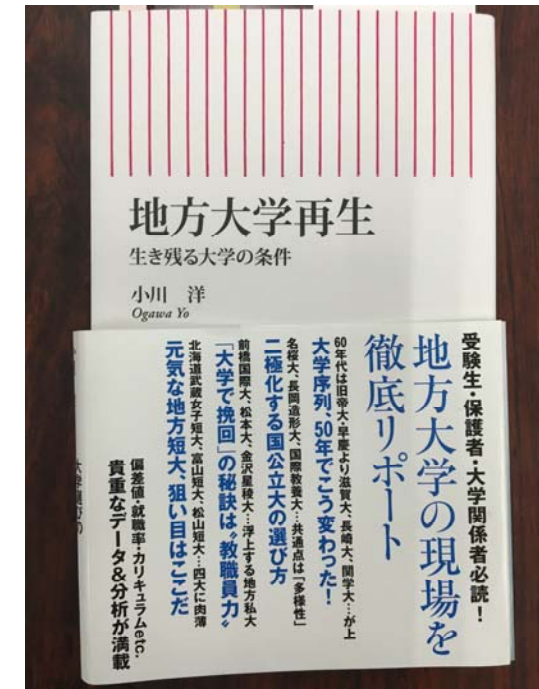 地方大学再生
生き残る大学の条件
小川 洋
Ogawa Yo
受験生・保護者・大学関係者必読!
地方大学の現場を
徹底リポート
60年代は旧帝大・早慶より滋賀大、長崎大、関学大…が上
大学序列、50年でこう変わった!
名桜大、長岡造形大、国際教養大…共通点は「多様性」
二極化する国公立大の選び方
前橋国際大、松本大、金沢星稜大…浮上する地方私大
「大学で挽回」の秘訣は“教職員力”
北海道武蔵女子短大、富山短大、松山短大…四大に肉薄
元気な地方短大、狙い目はここだ
偏差値・就職率・カリキュラムetc.
貴重なデータ&分析が満載